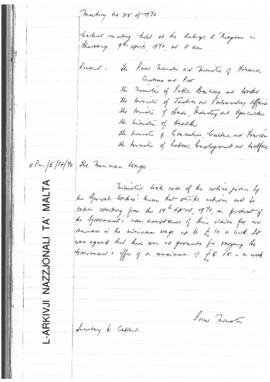 Meeting no 25 of 1970
Cabinet meeting held at the Auberge d'Aragon on
Thursday 9th April, 1970, at 11 am
Present: The Prime Minister and Minister of Finance,
Customs and Port
The Minister of Public Building and Works
The Minister of Justice and Parliamentary Affairs
The Minister of Trade, Industry and Agriculture
The Minister of Health
The Minister of Education, Culture and Tourism
The Minister of Labour, Employment and Welfare
The Minimum Wage
Ministers took note of the notice given by
the General Workers' Union that strike action will be
taken starting from the 14th April, 1970, in protest of
the Government's of their claim for an
increase in the minimum wage up to £10 a week. It
was agreed that there were no grounds for varying the
Government's offer of a minimum of a week
Prime Minister
Secretary to Cabinet
L-ARKIVJI NAZZJONALI TA' MALTA